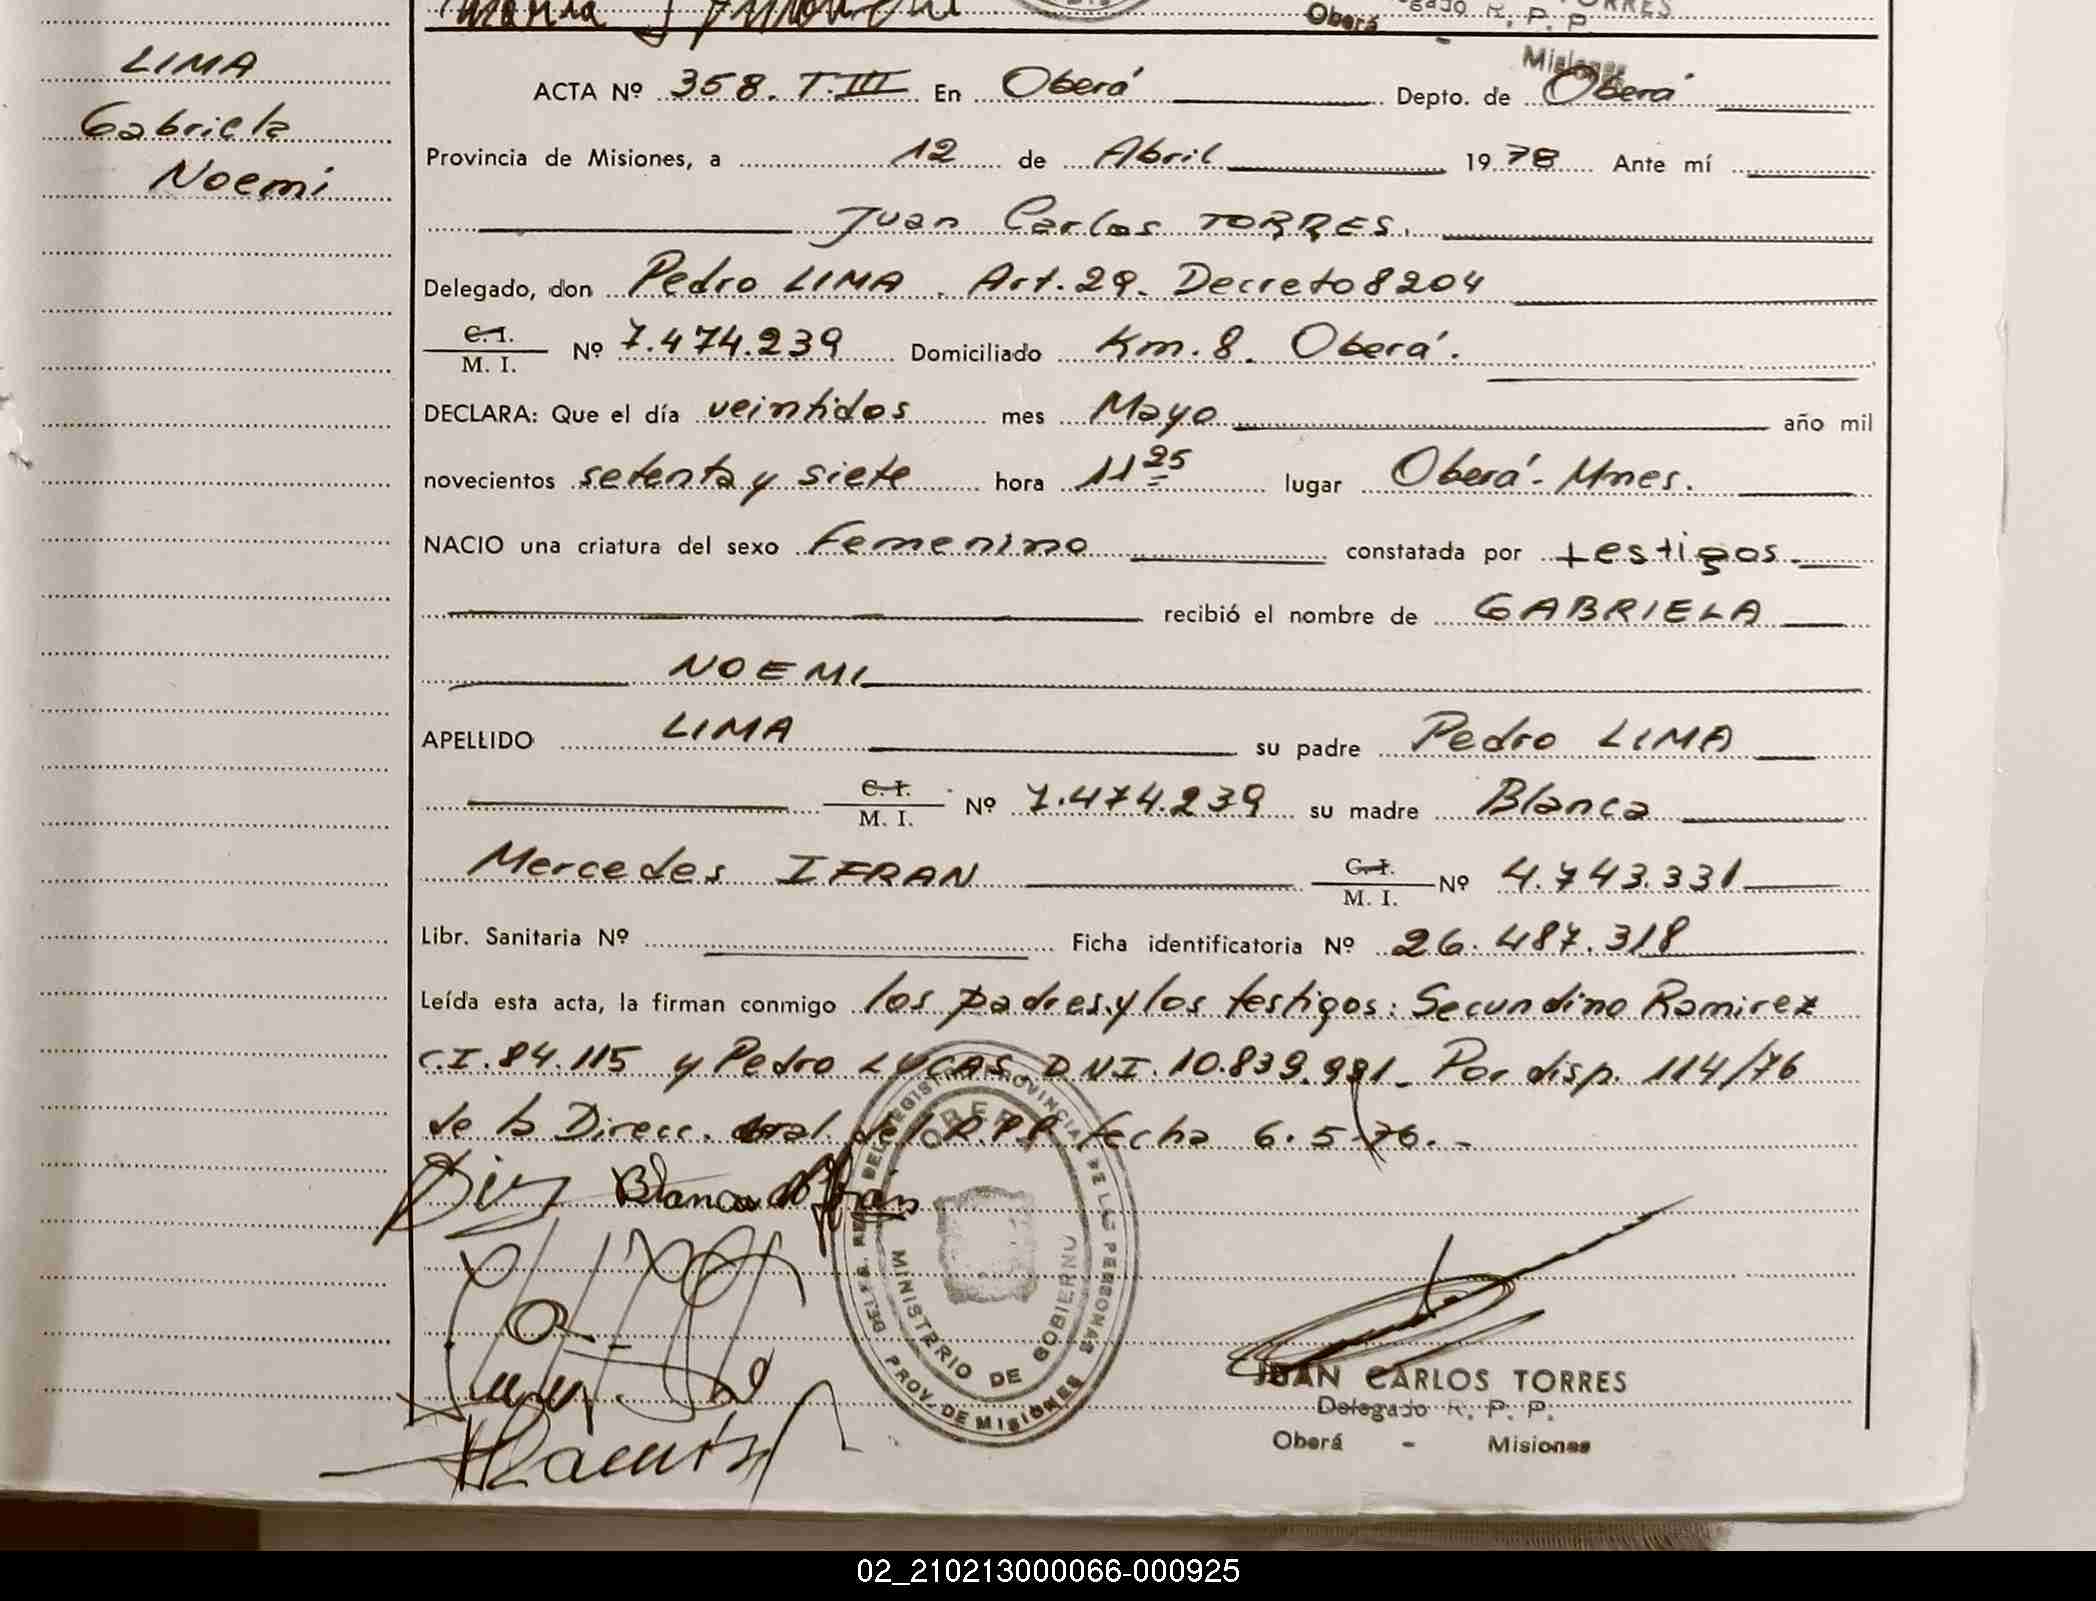 Oberá
R. P. P.
Misiones
LIMA
Gabriela
Noemi
ACTA Nº 358. T. III En Oberá Depto. de Oberá
Provincia de Misiones, a 12 de Abril 1978 Ante mí
Juan Carlos TORRES.
Delegado, don Pedro LIMA. Art. 29. Decreto 8204
C. I.
M. I. Nº 7.474.239 Domiciliado Km. 8. Oberá.
DECLARA: Que el día veintidos mes Mayo año mil
novecientos setenta y siete hora 11 25 lugar Oberá - Mnes.
NACIO una criatura del sexo femenino constatada por testigos.
recibió el nombre de GABRIELA
NOEMI
APELLIDO LIMA su padre Pedro LIMA
C. I.
M. I. Nº 7.474.239 su madre Blanca
Mercedes IFRAN C. I.
M. I. Nº 4.743.331
Libr. Sanitaria Nº Ficha identificatoria Nº 26.487.318
Leída esta acta, la firman conmigo los padres y los testigos: Secundino Ramirez
C.I. 84.115 y Pedro LUCAS. DNI. 10.839.991_ Por disp. 114/76
de la Direcc. Gral. del R.P.P. fecha 6.5.76. -
Blanca M Ifran
REGISTRO PROVINCIAL DE LAS PERSONAS
PROV. DE MISIONES
OBERA
MINISTERIO DE GOBIERNO
JUAN CARLOS TORRES
Delegado R. P. P.
Oberá - Misiones
02_210213000066-000925